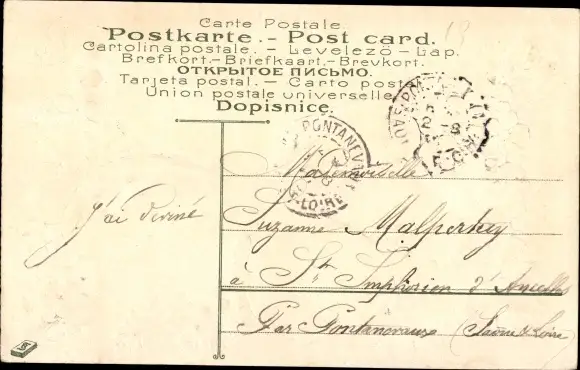 Carte Postale.
Postkarte. - Post card.
Cartolina postale. - Levelező - Lap.
Brefkort. - Briefkaart. - Brevkort.
ОТКРЫТОЕ ПИСЬМО.
Tarjeta postal. - Carto postal
Union postale universelle
Dopisnice.
PONTANEVAUX
S.-LOIRE
J'ai deviné
Mademoiselle
Suzanne
à St. Symphorien d'Ancelles
Par Pontanevaux (Saône & Loire)